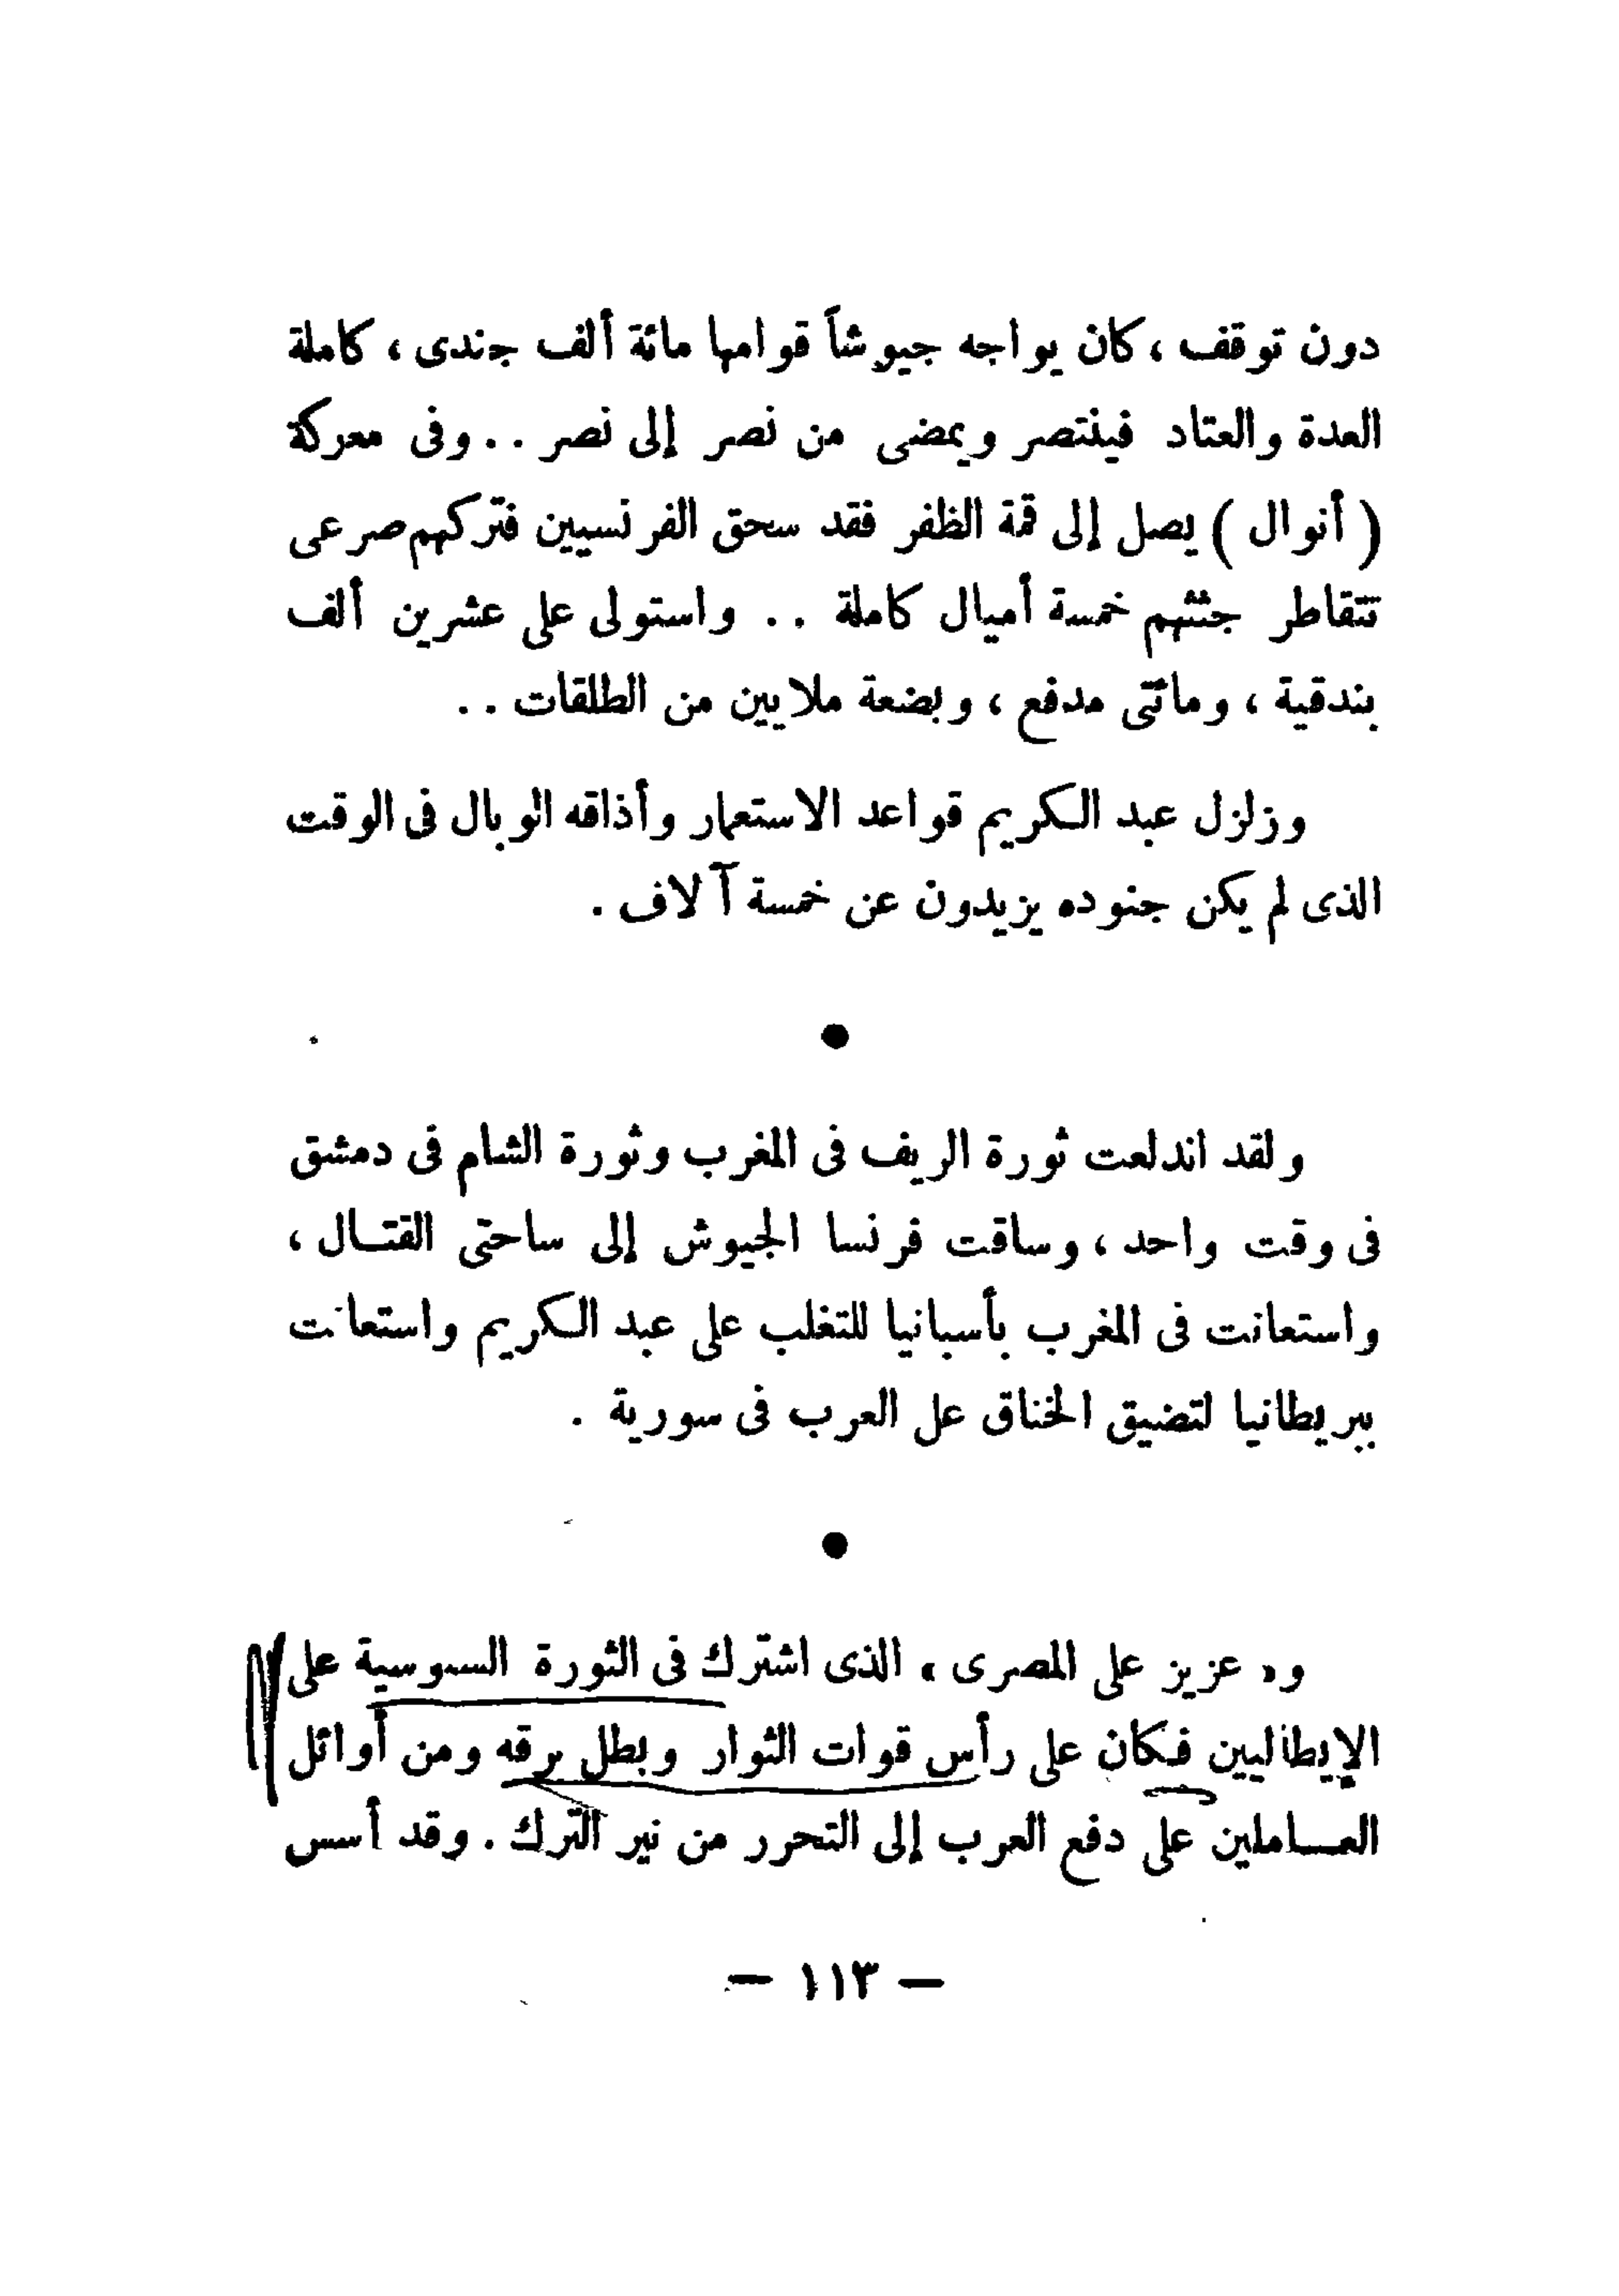 دون توقف ، كان يواجه جيوشاً قوامها مائة ألف جندى ، كاملة
العدة والعتاد فينتصر ويمضى من نصر إلى نصر . . وفى معركة
( أنوال ) يصل إلى قمة الظفر فقد سحق الفرنسيين فتركهم صرعى
تتقاطر جثثهم خمسة أميال كاملة . . واستولى على عشرين ألف
بندقية ، ومائتى مدفع ، وبضعة ملايين من الطلقات . .
وزلزل عبد الكريم قواعد الاستعمار وأذاقه الوبال فى الوقت
الذى لم يكن جنوده يزيدون عن خمسة آلاف .
●
ولقد اندلعت ثورة الريف فى المغرب وثورة الشام فى دمشق
فى وقت واحد ، وساقت فرنسا الجيوش إلى ساحتى القتـال ،
واستعانت فى المغرب بأسبانيا للتغلب على عبد الكريم واستعانت
ببريطانيا لتضيق الخناق عل العرب فى سورية .
●
و« عزيز على المصرى » الذى اشترك فى الثورة السنوسية على
الإيطاليين فكان على رأس قوات الثوار وبطل برقه ومن أوائل
العـــاملين على دفع العرب إلى التحرر من نير الترك . وقد أسس
— ١١٣ —